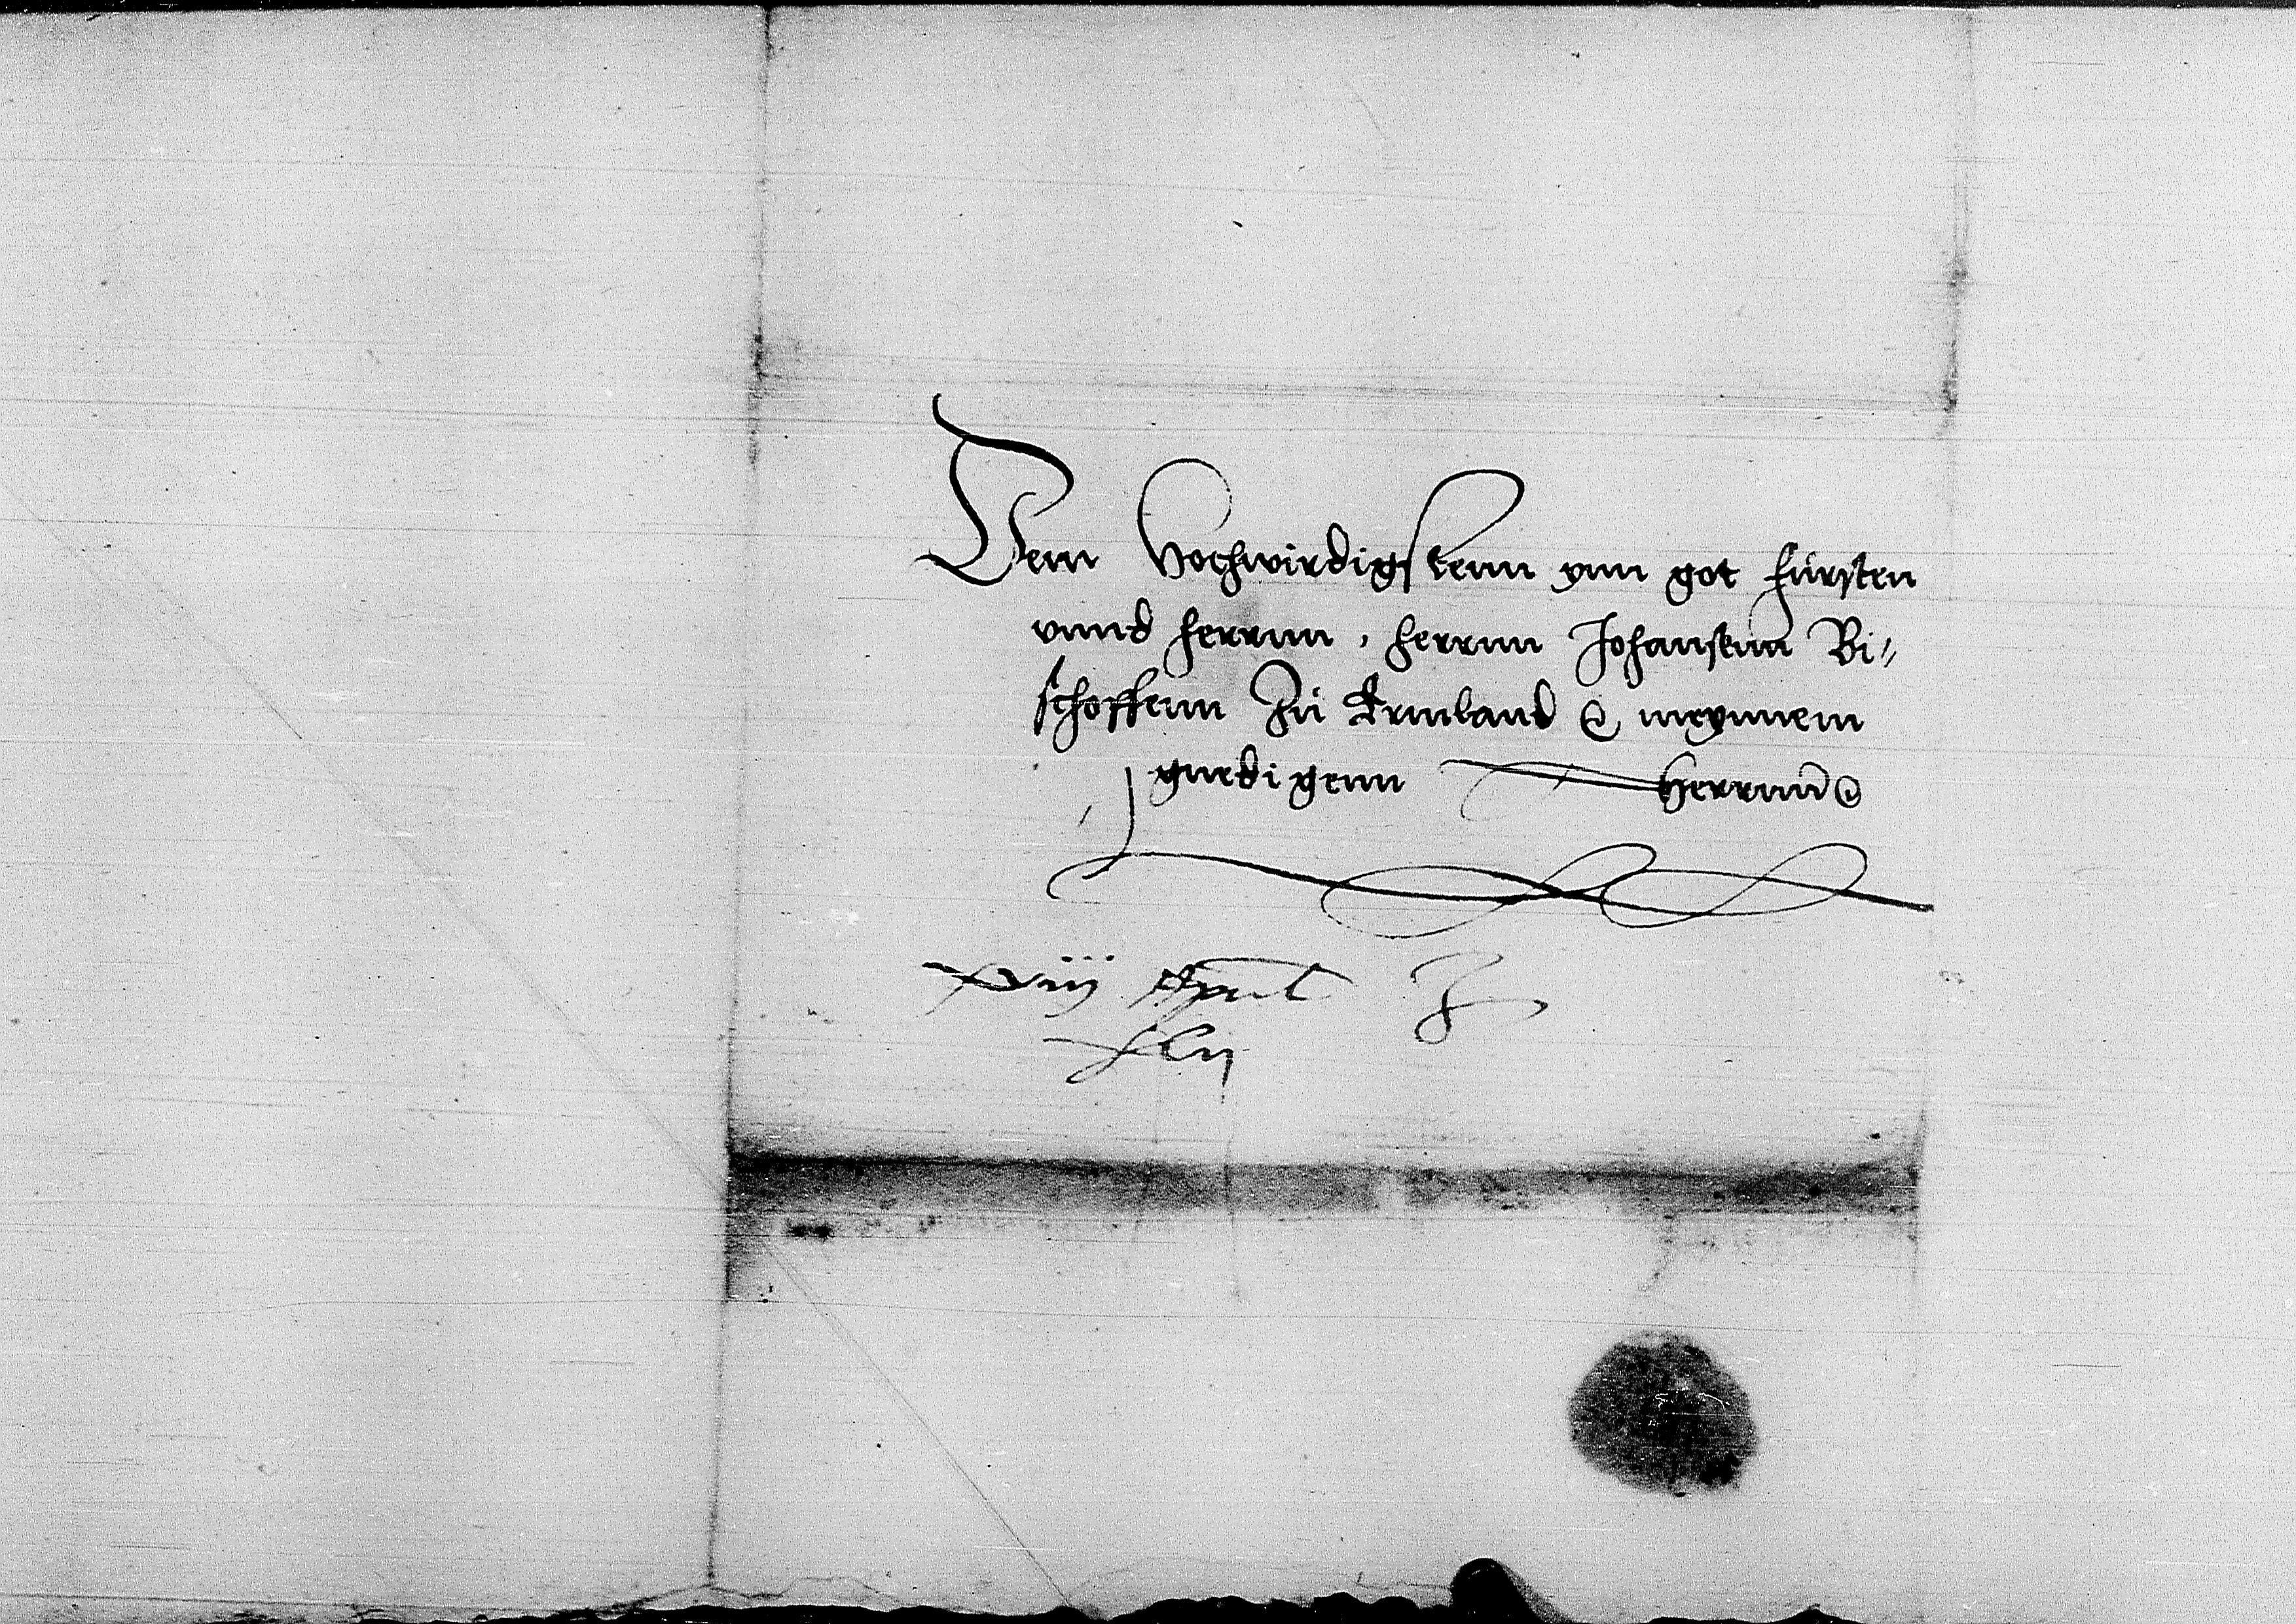 Dem hochwirdigstenn ynn got fursten
vnnd herrnn, herrnn Johansenn Bi⸗
schoffenn zu Ermland &c meynnem
gnedigenn Herrnn &c
xviij April
xlij